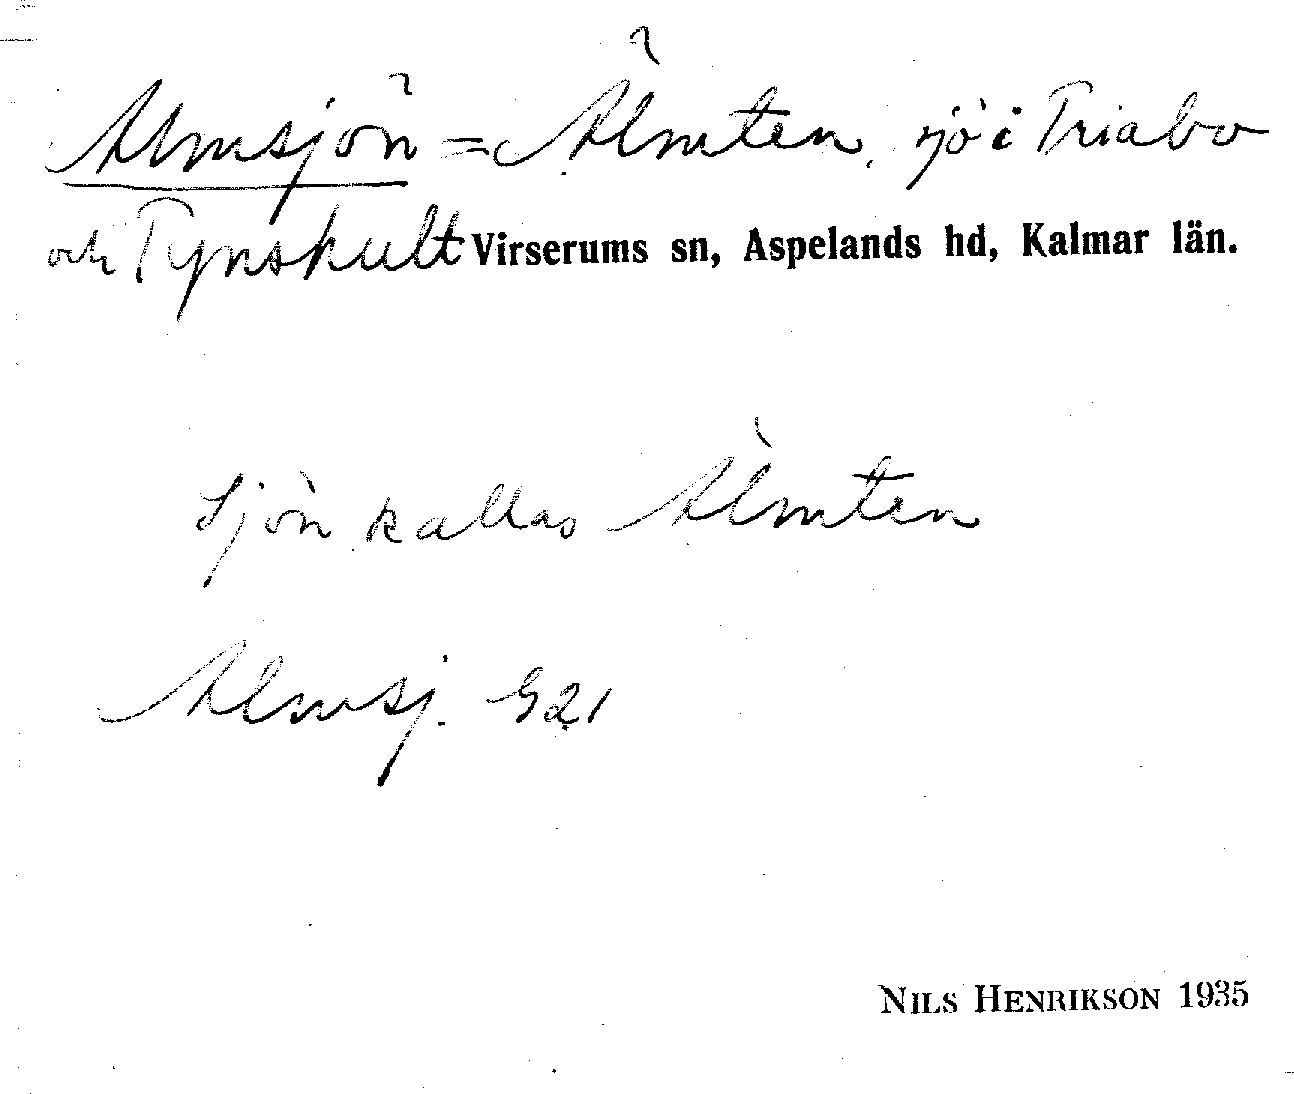 Almsjön = Älmten, sjö i Triabo
och Tynshult Virserums sn, Aspelands hd, Kalmar län.
Sjön kallas Älmten
Almsj. G21
NILS HENRIKSON 1935